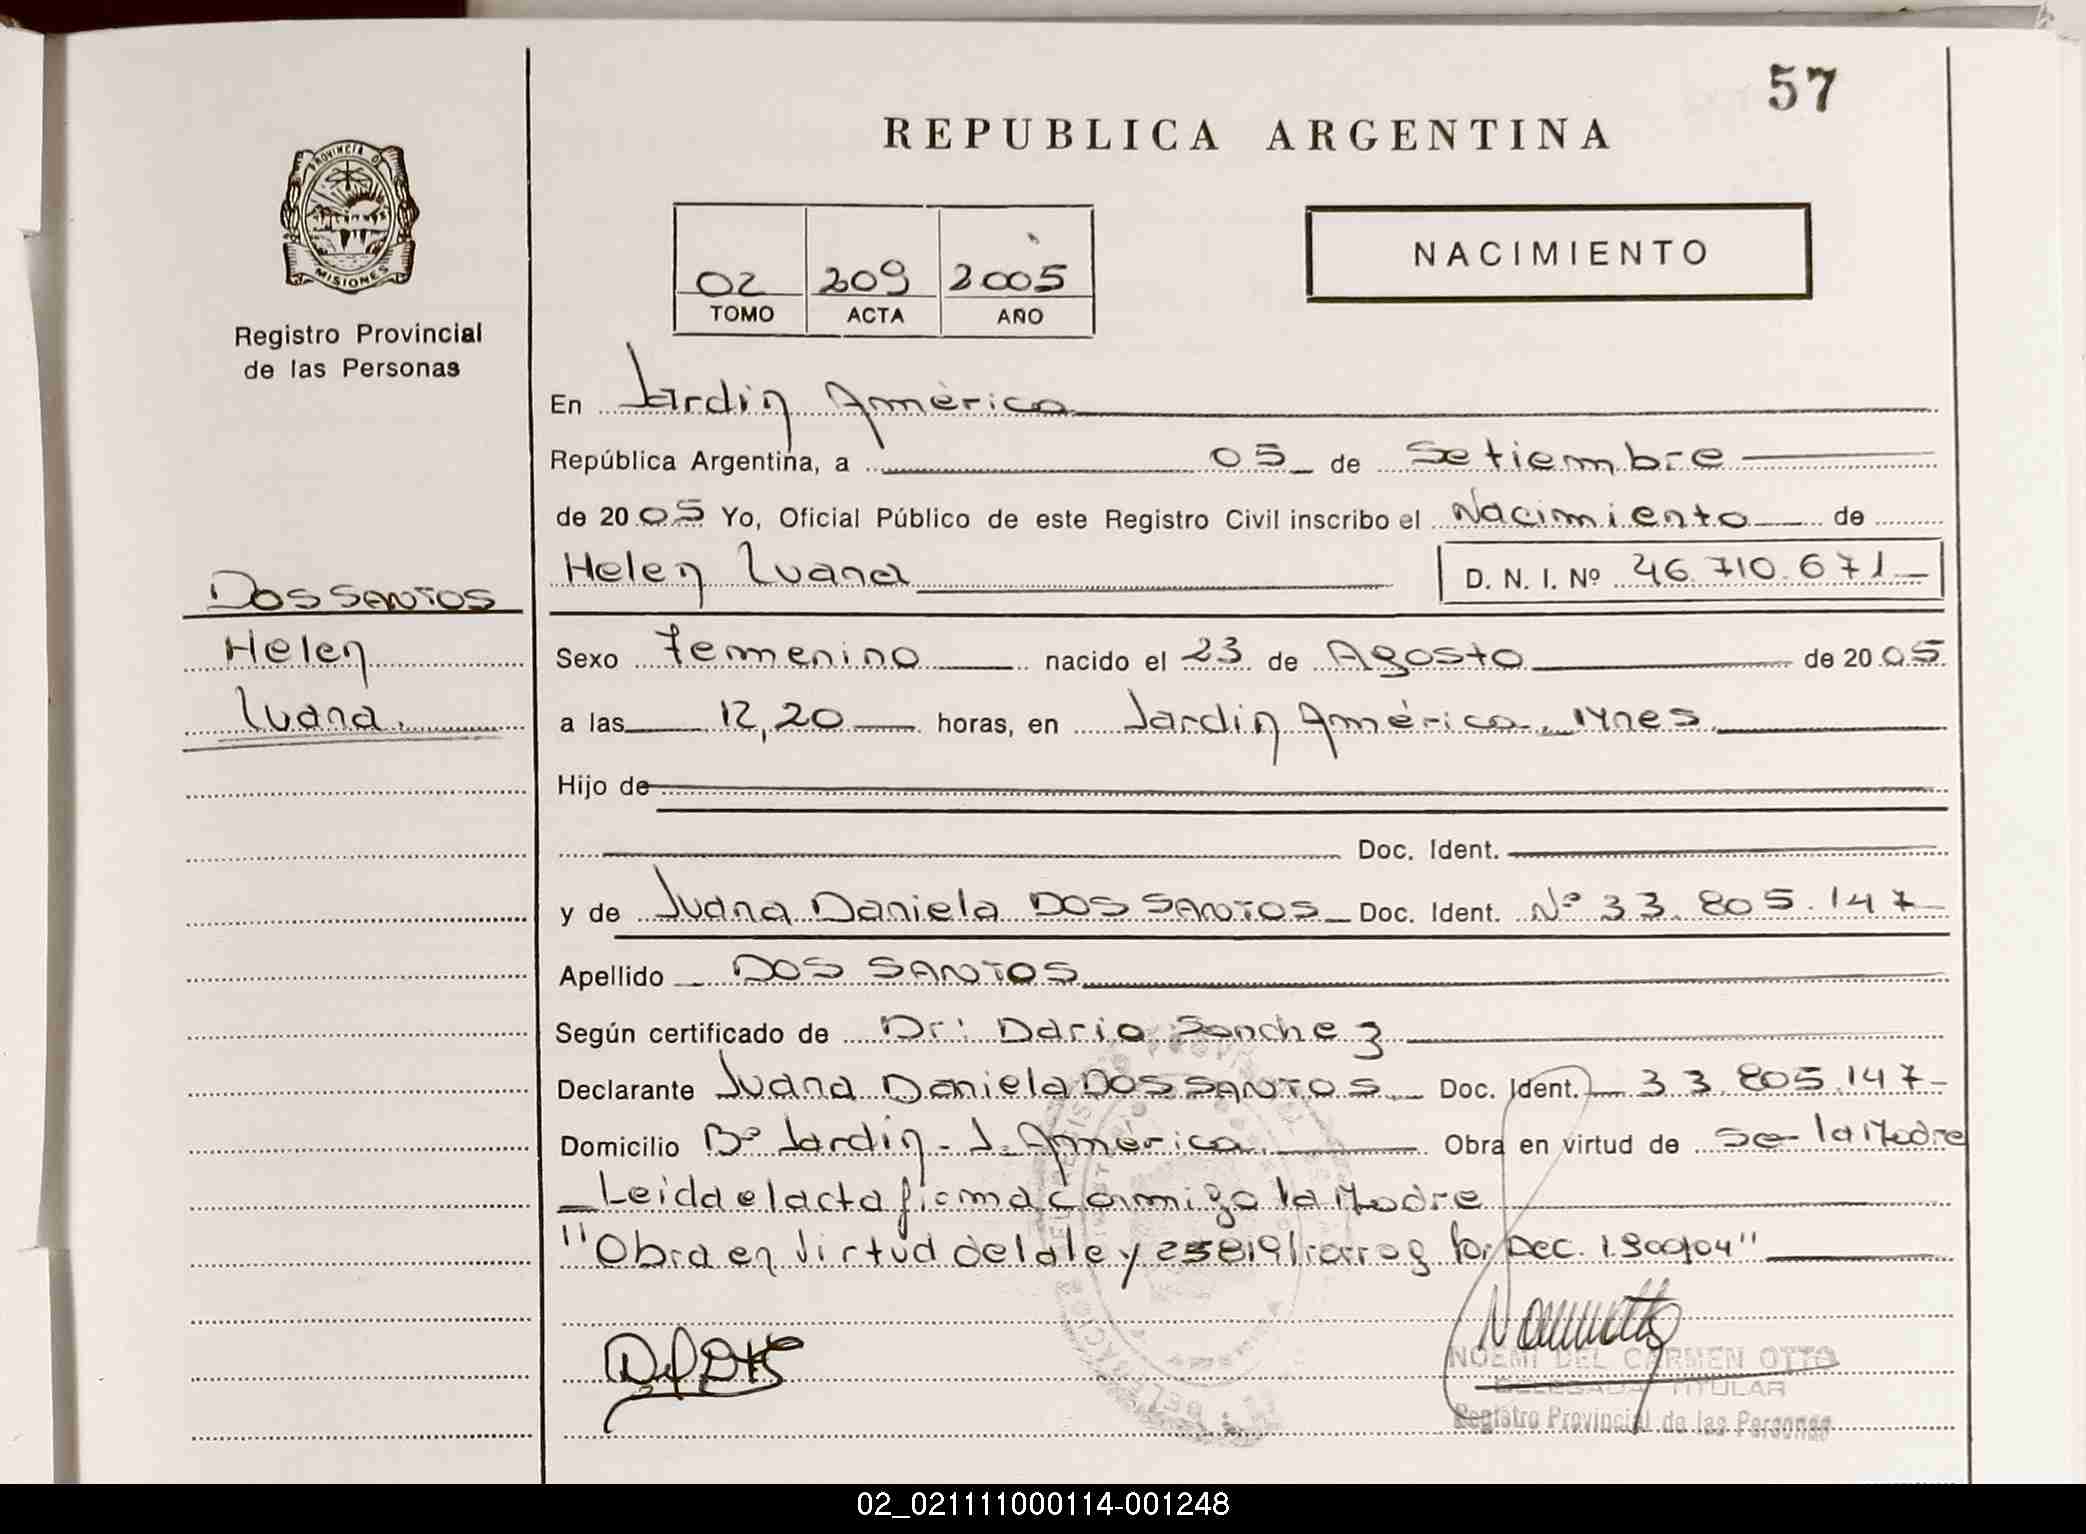 57
REPUBLICA ARGENTINA
PROVINCIA DE
MISIONES
Registro Provincial
de las Personas
02 209 2005
TOMO ACTA AÑO
NACIMIENTO
En Jardin América
República Argentina, a 05 de Setiembre
de 2005 Yo, Oficial Público de este Registro Civil inscribo el Nacimiento de
Helen Luana D. N. I. Nº 46.710.671
DOS SANTOS
Helen
Luana.
Sexo Femenino nacido el 23 de Agosto de 2005
a las 12,20 horas, en Jardin América, Mnes
Hijo de
Doc. Ident.
y de Juana Daniela DOS SANTOS Doc. Ident. Nº 33.805.147
Apellido DOS SANTOS
Según certificado de Dr: Dario Sanchez
Declarante Juana Daniela DOS SANTOS Doc. Ident. 33.805.147
Domicilio Bº Jardin - J. América Obra en virtud de la Madre
Leida el acta firma conmigo la Madre
"Obra en Virtud de la ley 25819 por Dec. 1.900/04"
NOEMI DEL CARMEN OTTO
DELEGADA TITULAR
Registro Provincial de las Personas
02_021111000114-001248